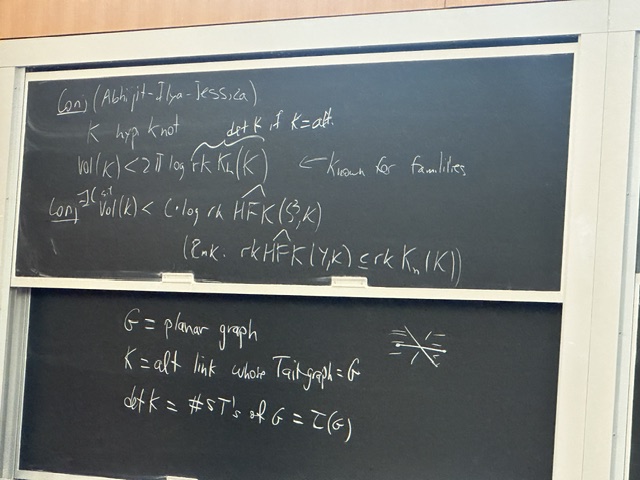 Conj (Abhijit-Ilya-Jessica)
K hyp knot
det K if K=alt.
Vol(K) < 2π log rk Kh(K) ← Known for families
Conj ∃C s.t. Vol(K) < C·log rk HFK(S³,K)
(Rmk. rk HFK(Y,K) ≤ rk Kh(K))
G = planar graph
K = alt link whose Tait graph = G
det K = # ST's of G = τ(G)